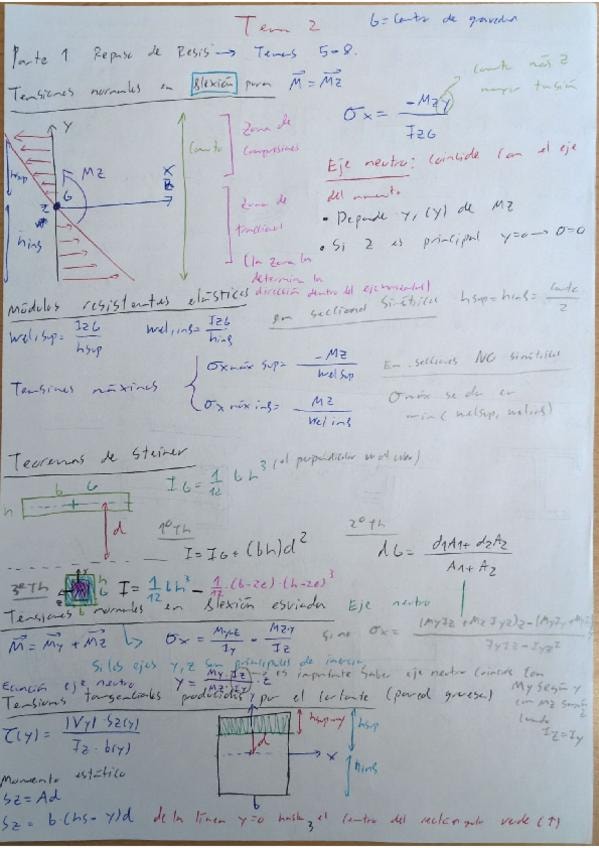 Tema 2
G = Centro de gravedad
Parte 1 Repaso de Resis → Temas 5-8.
Tensiones normales en flexión pura M = Mz
σx = -Mz y / Iz G
canto más
mayor tensión
Y
Mz
G
X
Z
hsup
hinf
Canto
Zona de compresiones
Zona de tracciones
(la zona la determina la dirección dentro del eje horizontal)
Eje neutro: Coincide con el eje del momento
• Depende y, (y) de Mz
• Si Z es principal y=0 → σ=0
Módulos resistentes elásticos
en secciones simétricas hsup = hinf = canto / 2
Wel,sup = IzG / hsup
Wel,inf = IzG / hinf
Tensiones máximas
σx máx sup = -Mz / Wel sup
σx máx inf = Mz / Wel inf
En secciones NO simétricas
σ máx se da en
min (Wel sup, Wel inf)
Teoremas de Steiner
IG = 1/12 b h³ (el perpendicular va al cubo)
b G
h
d
1º Th
I = IG + (bh)d²
2º Th
dG = d1A1 + d2A2 / A1 + A2
3º Th
h
b
I = 1/12 bh³ - 1/12 · (b-2e) · (h-2e)³
Tensiones normales en flexión esviada
Eje neutro
M = My + Mz
σx = My z / Iy - Mz y / Iz
si no σx =
Si los ejes y, z son principales de inercia
Ecuación eje neutro y = My · Iz / Mz · Iy · z
es importante saber eje neutro coincide con
My según y
con Mz según z
cuando
Iz = Iy
Tensiones tangenciales producidas por el cortante (pared gruesa)
τ(y) = |Vy| · Sz(y) / Iz · b(y)
hsup-y
hsup
hinf
d
X
b
Momento estático
Sz = Ad
Sz = b · (hs - y)d de la línea y=0 hasta el centro del rectángulo verde (↑)
3